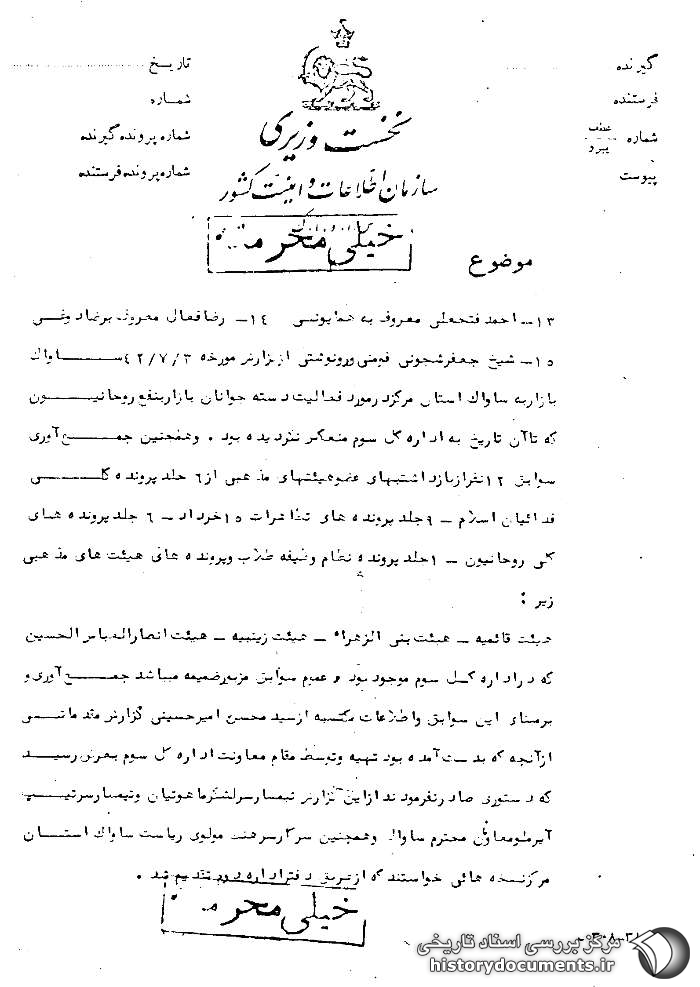 گیرنده
فرستنده
شماره عطف پیرو
پیوست
تاریخ
شماره
شماره پرونده گیرنده
شماره پرونده فرستنده
نخست وزیری
سازمان اطلاعات و امنیت کشور
س.ا.و.ا.ک
خیلی محرمانه
موضوع
۱۳ـ احمد فتحعلی معروف به همایونی ۱۴ـ رضا فعال معروف برضا
۱۵ـ شیخ جعفر شجونی فومنی ورونوشتی از گزارش مورخه ۴۲/۷/۳ ســـاواک
بازار به ساواک استان مرکز در مورد فعالیت دسته جوانان بازار بنفع روحانیـــون
که تا آن تاریخ به اداره کل سوم منعکس نگردیده بود . وهمچنین جمـــع آوری
سوابق ۱۲ نفر از بازداشتیهای عضو هیئتهای مذهبی از ۶ جلد پرونده کلـــی
فدائیان اسلام ـ ۹ جلد پرونده های تظاهرات ۱۵ خرداد ـ ۶ جلد پرونده های
کلی روحانیون ـ ۱ جلد پرونده نظام وظیفه طلاب وپرونده های هیئت های مذهبی
زیر :
هیئت قائمیه ـ هیئت بنی الزهرا ـ هیئت زینبیه ـ هیئت انصار العباس الحسین
که در اداره کـل سوم موجود بود و عموم سوابق مزبور ضمیمه میباشد جمـــع آوری و
برمبنای این سوابق واطلاعات مکتسبه از سید محسن امیرحسینی گزارش مقدماتـــی
از آنچه که بدست آمده بود تهیه وتوسط مقام معاونت اداره کل سوم بعرض رسیـــد
که دستوری صادر نفرمودند از این گزارش تیمسار سرلشگر ماهوتیان وتیمسار سرتیـــپ
آیرملو معاون محترم ساواک وهمچنین سرکار سرهنگ مولوی ریاست ساواک استـــان
مرکز نسخه هائی خواستند که از طریق دفتر اداره دوم تقدیم شد .
خیلی محرمانه
مرکز بررسی اسناد تاریخی
historydocuments.ir